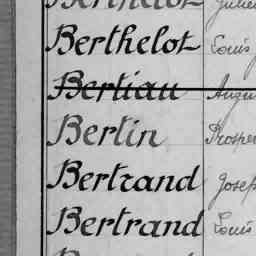 Berthelot
Berthelot Louis
Bertiau
Bertin Prosper
Bertrand Josep
Bertrand Louis